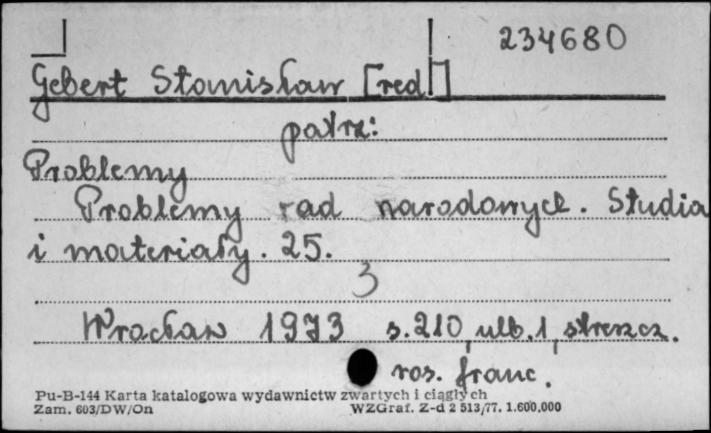 234680
Gebert Stanisław [red.]
patrz:
Problemy
Problemy rad narodowych. Studia
i materiały. 25.
3
Wrocław 1973 s. 210, ulb. 1, streszcz.
ros. franc.
Pu-B-144 Karta katalogowa wydawnictw zwartych i ciągłych
Zam. 603/DW/On WZGraf. Z-d 2 513/77. 1.600.000